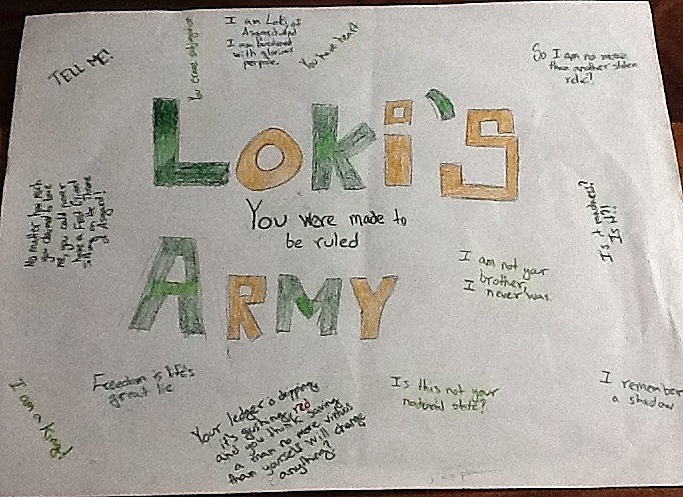 TELL ME!
I am Loki of
Asgard and
I am burdened
with glorious
You have heart
So I am no more
than another stolen
relic?
LOKI'S
You were made to
be ruled
ARMY
No matter how much
you claimed to love
me, you could never
have a Frost Giant
sitting on the Throne
of Asgard!
Is it madness?
Is it?!
I am not your
brother,
I never was.
Freedom is life's
great lie
I am a King!
Your ledger is dripping,
it's gushing red
and you think saving
a man no more virtuous
than yourself will change
anything?
Is this not your
natural state?
I remember
a shadow